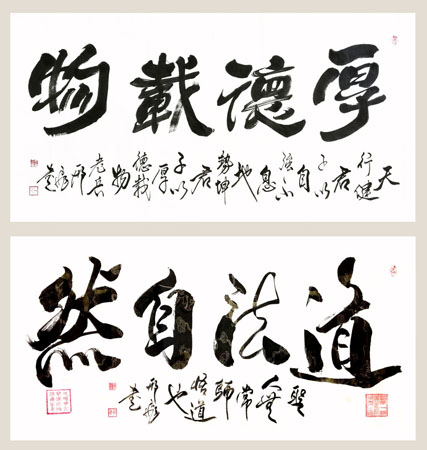 厚德載物
天行健君子以自强不息地勢坤君子以厚德載物
道法自然
聖人無常師悟道也